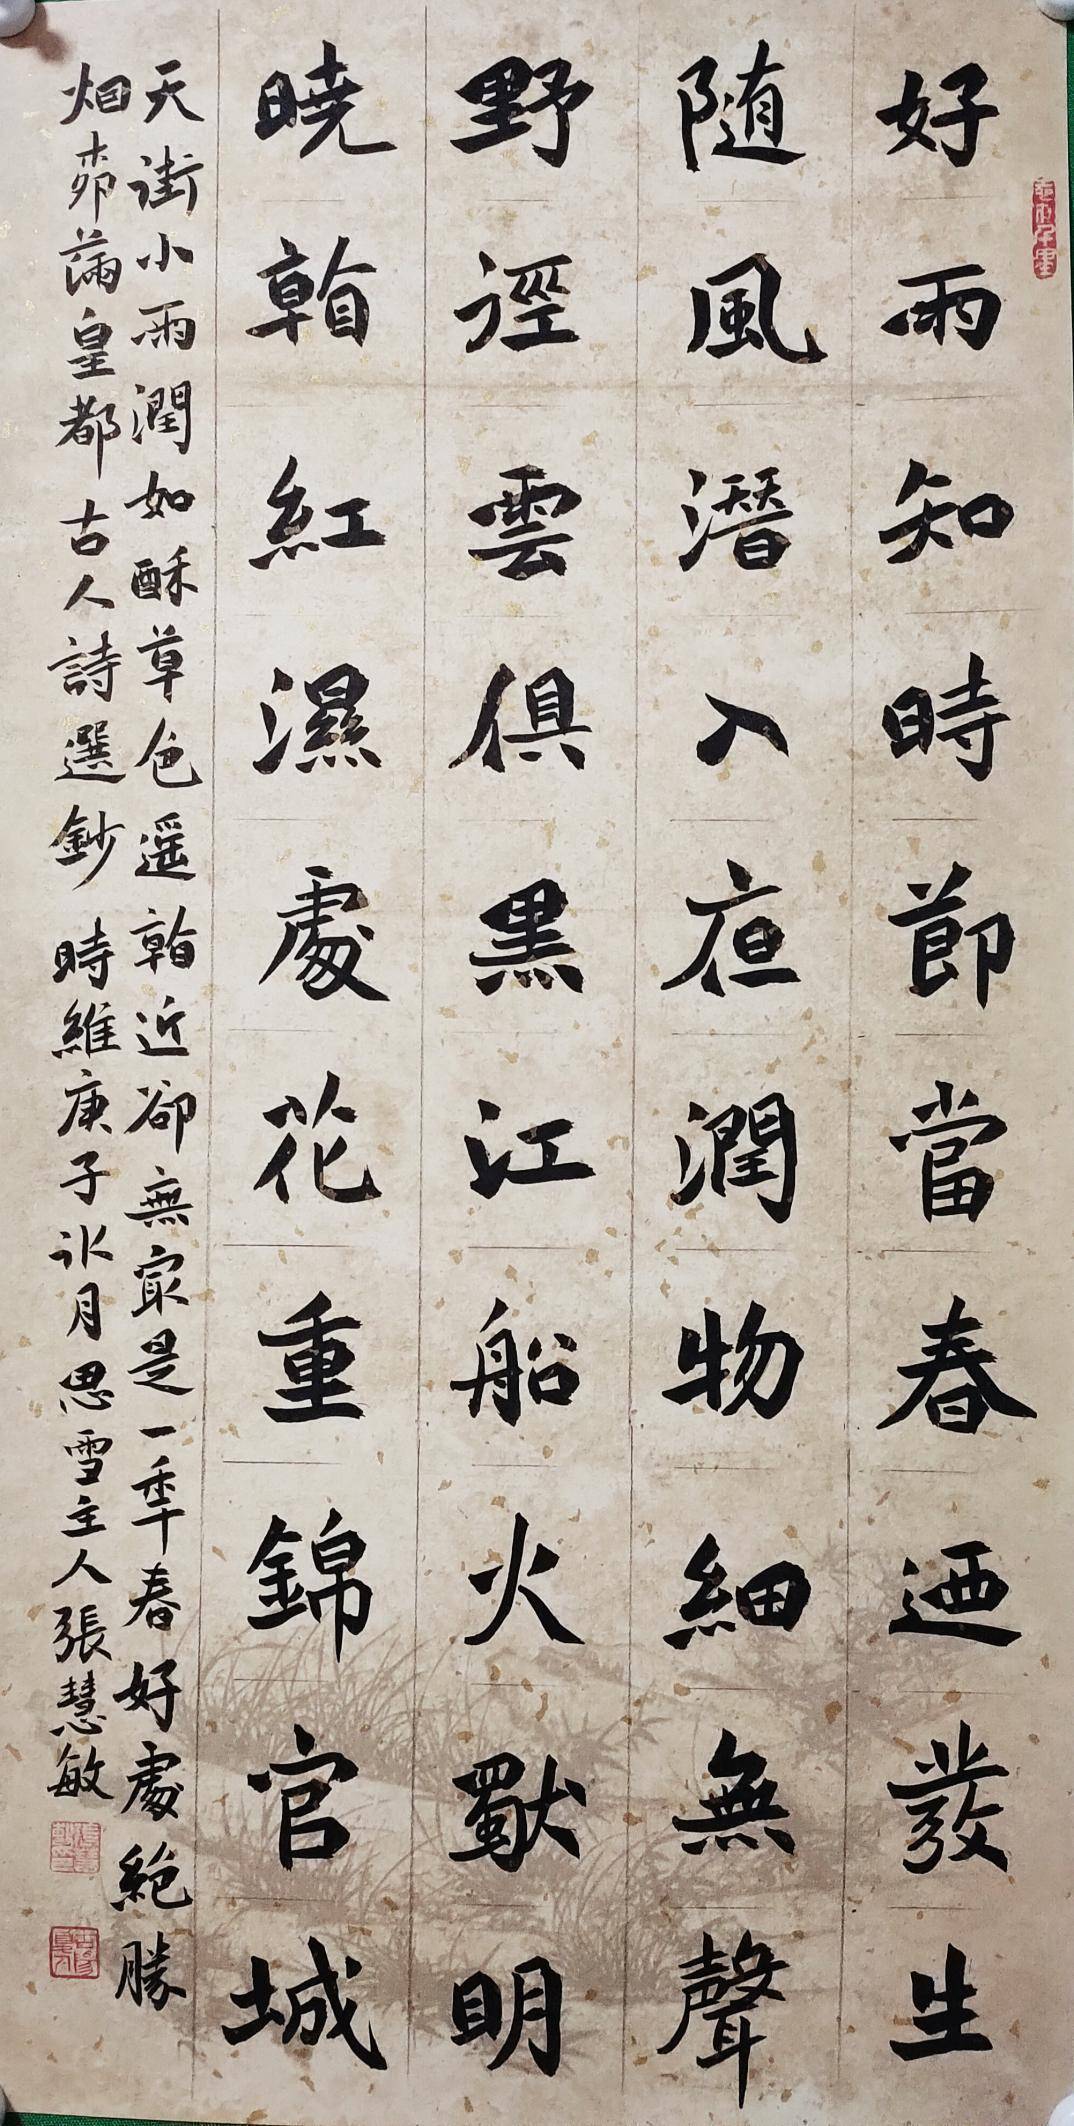 好雨知時節當春迺發生
随風潛入夜潤物細無聲
野徑雲俱黑江船火獨明
曉看紅濕處花重錦官城
天街小雨潤如酥草色遥看近卻無最是一年春好處絕勝
烟柳滿皇都古人詩選鈔時維庚子冰月思雪主人張慧敏